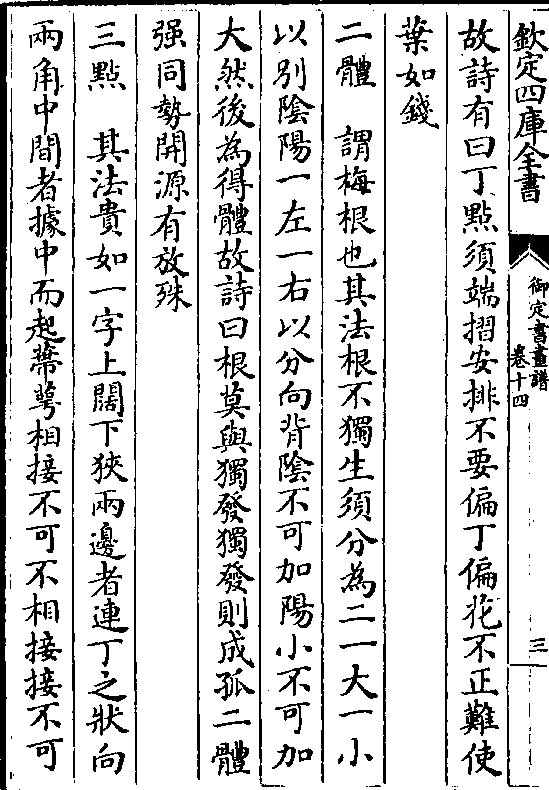 欽定四庫全書
御定書畫譜
卷十四
三
故詩有曰丁點須端揩安排不要偏丁偏花不正難使
葉如錢
二體　謂梅根也其法根不獨生須分為二一大一小
以別陰陽一左一右以分向背陰不可加陽小不可加
大然後為得體故詩曰根莫與獨發獨發則成孤二體
强同勢開源有放殊
三點　其法貴如一字上闊下狹兩邊者連丁之狀向
兩角中間者據中而起蔕萼相接不可不相接接不可